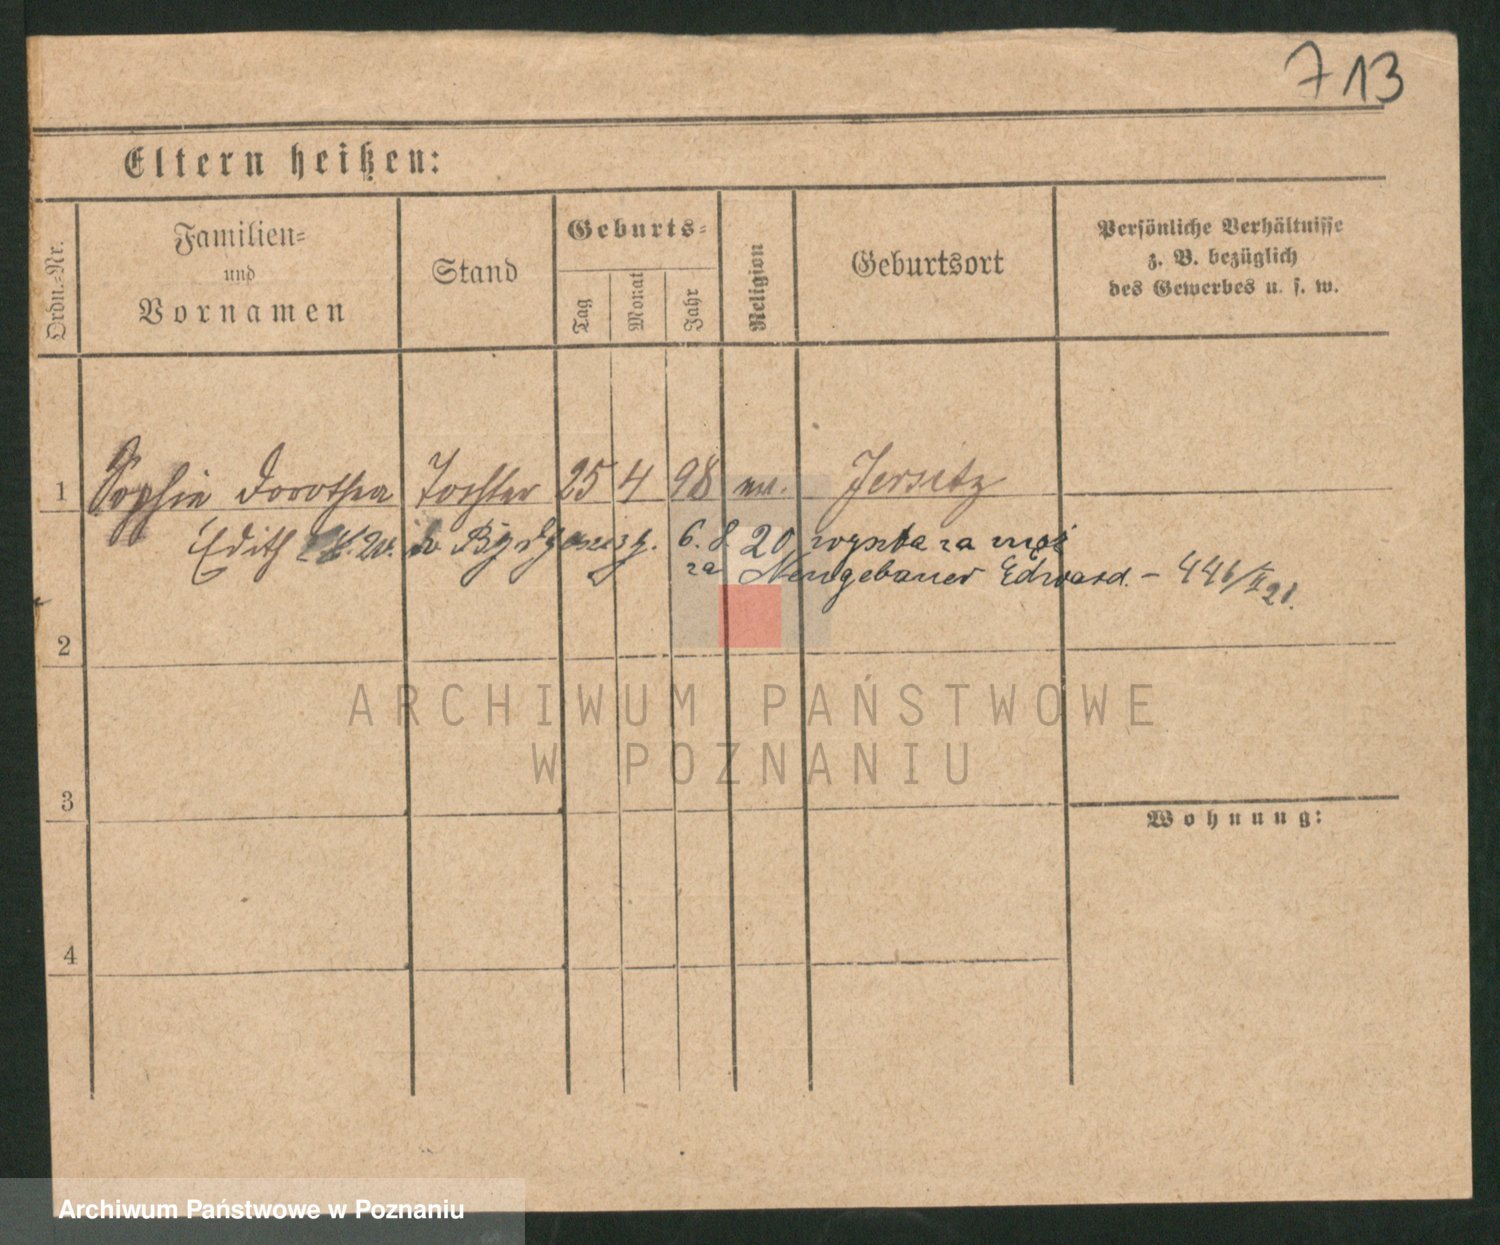 713
Eltern heißen:
Ordn.-Nr.
Familien=
und
Vornamen
Stand
Geburts=
Tag
Monat
Jahr
Religion
Geburtsort
Persönliche Verhältnisse
z. B. bezüglich
des Gewerbes u. s. w.
1 Sophie Dorothea Tochter 25 4 98 Jersitz
Edith w Bydgoszczy. 6. 8. 20 wyszła za mąż
za Neugebauer Edward. –
2
3
Wohnung:
4
ARCHIWUM PAŃSTWOWE
W POZNANIU
Archiwum Państwowe w Poznaniu